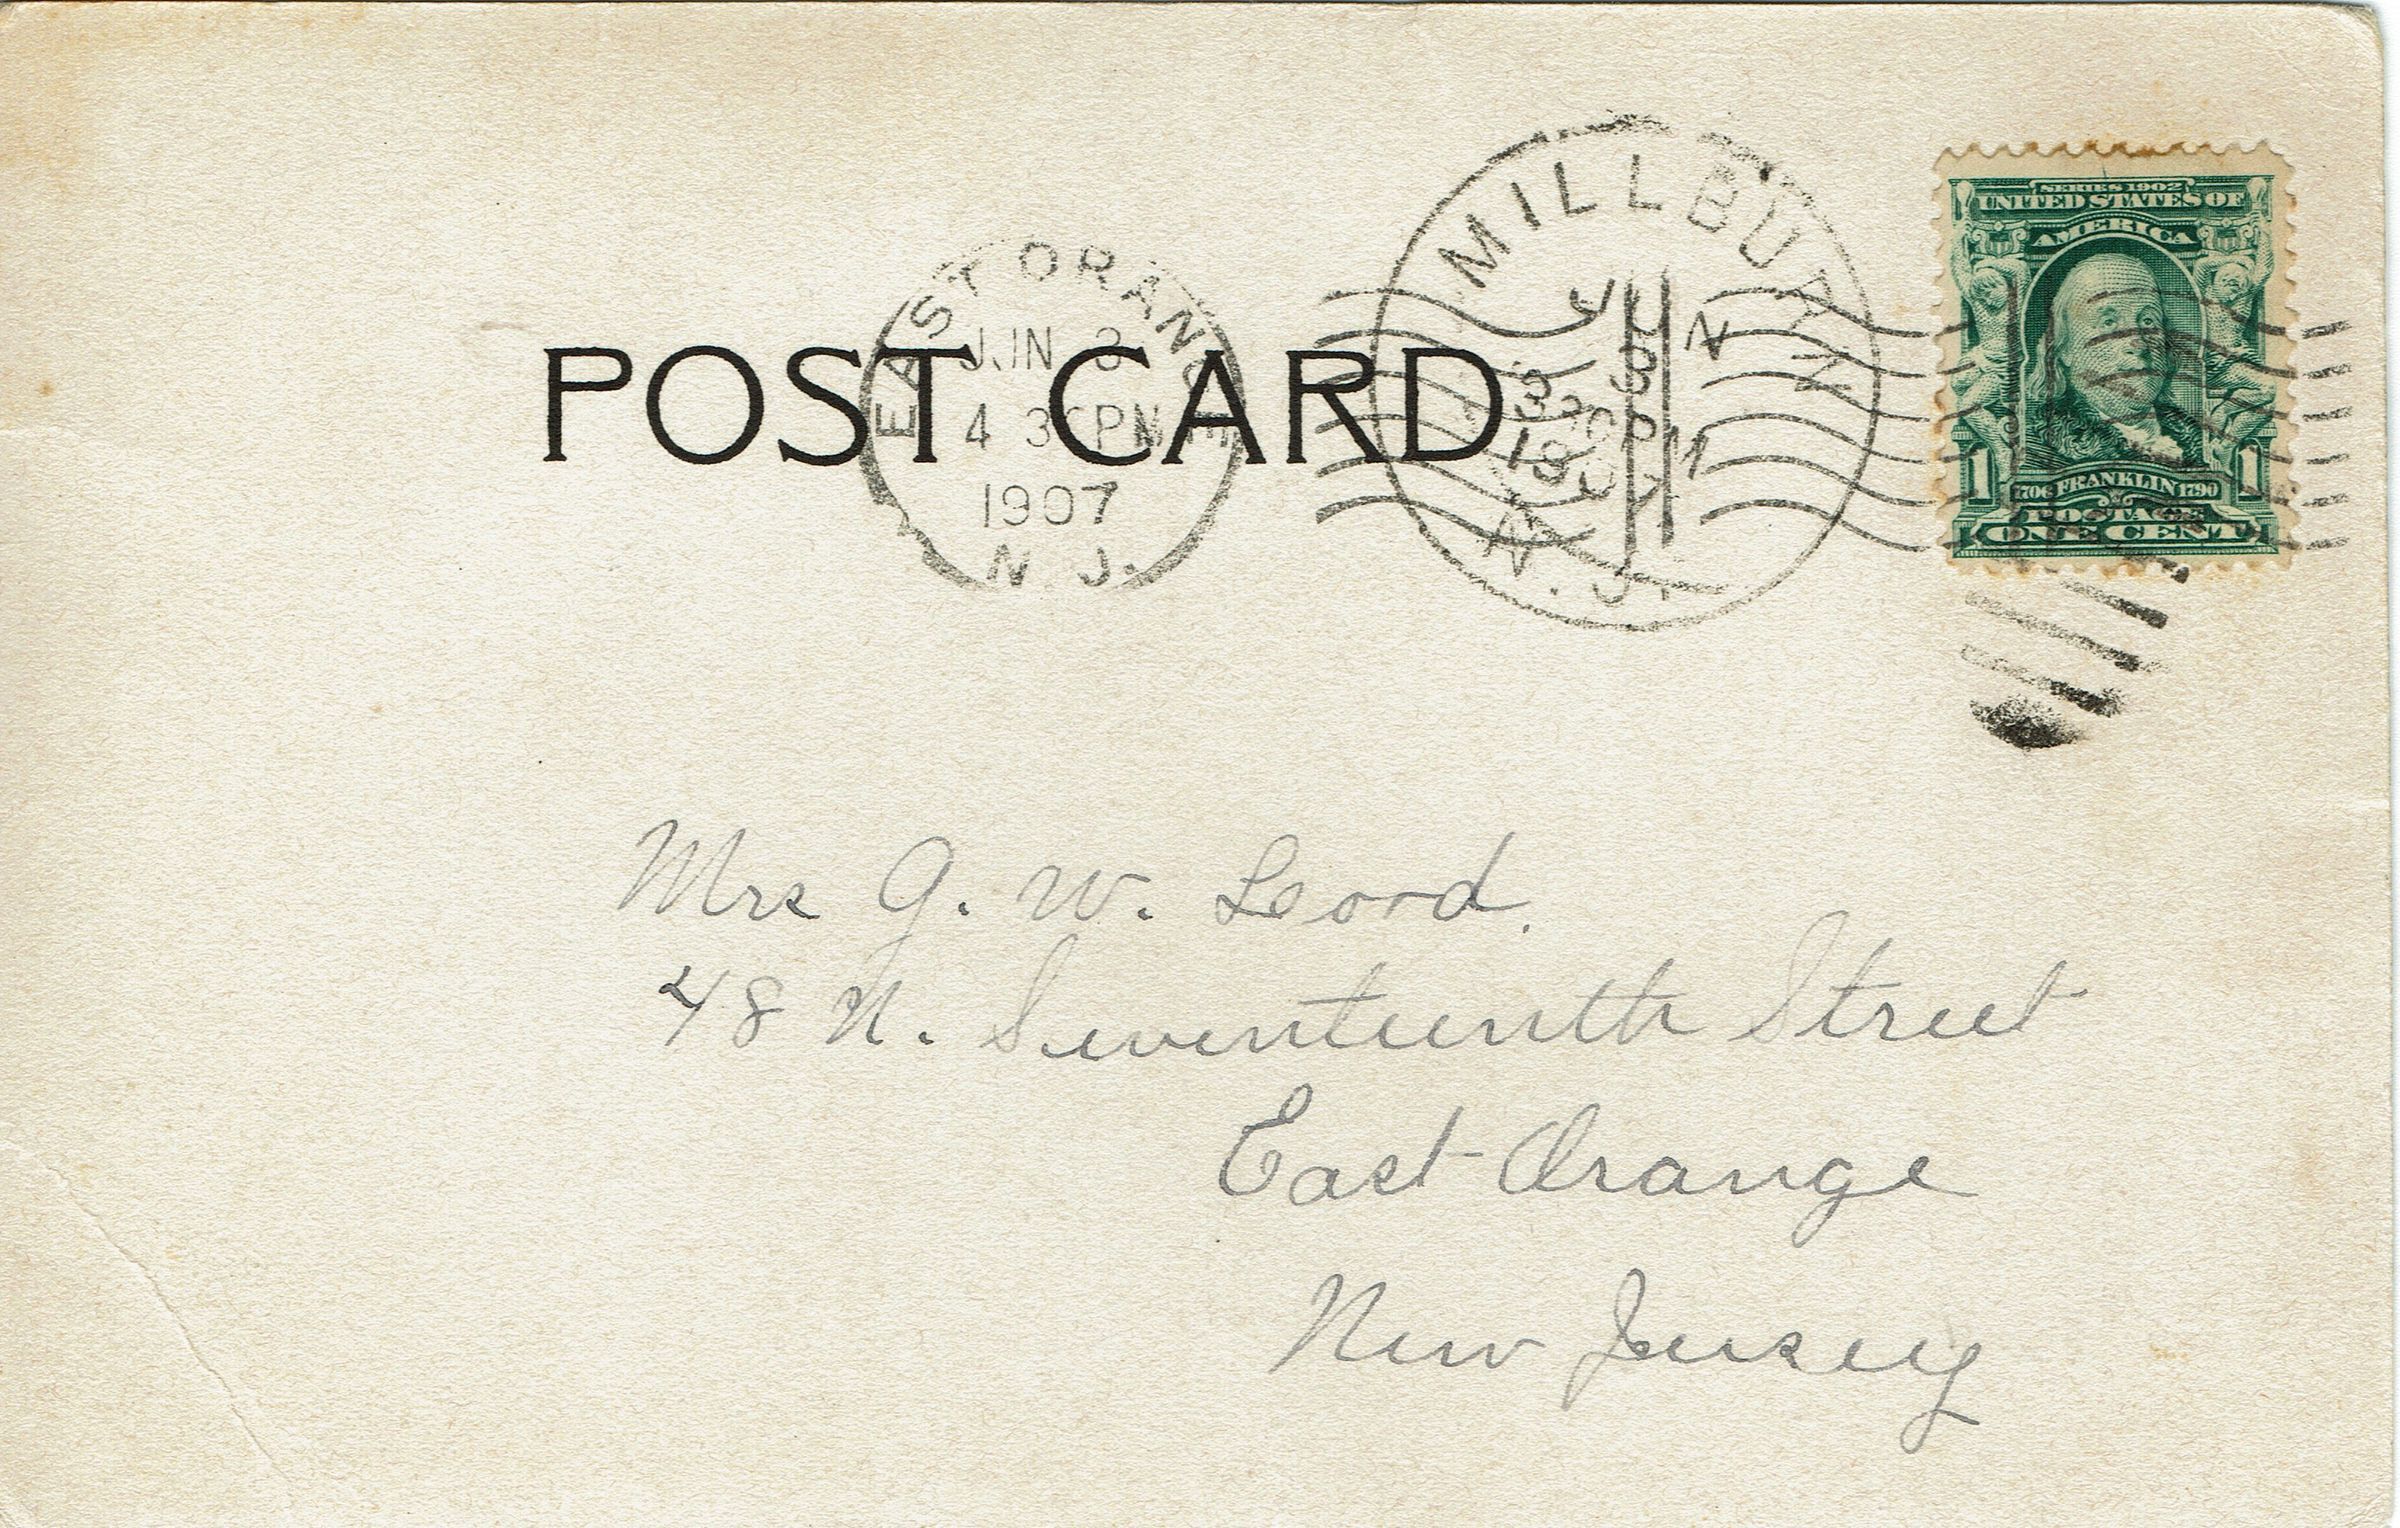 SERIES 1902
UNITED STATES OF
AMERICA
1 1706 FRANKLIN 1790 1
POSTAGE
ONE CENT
MILLBURN
JUN
3
1907
N.J.
EAST ORANGE
JUN 3
4 30 PM
1907
N J.
POST CARD
Mrs G. W. Leord.
48 N. Seventeenth Street
East Orange
New Jersey